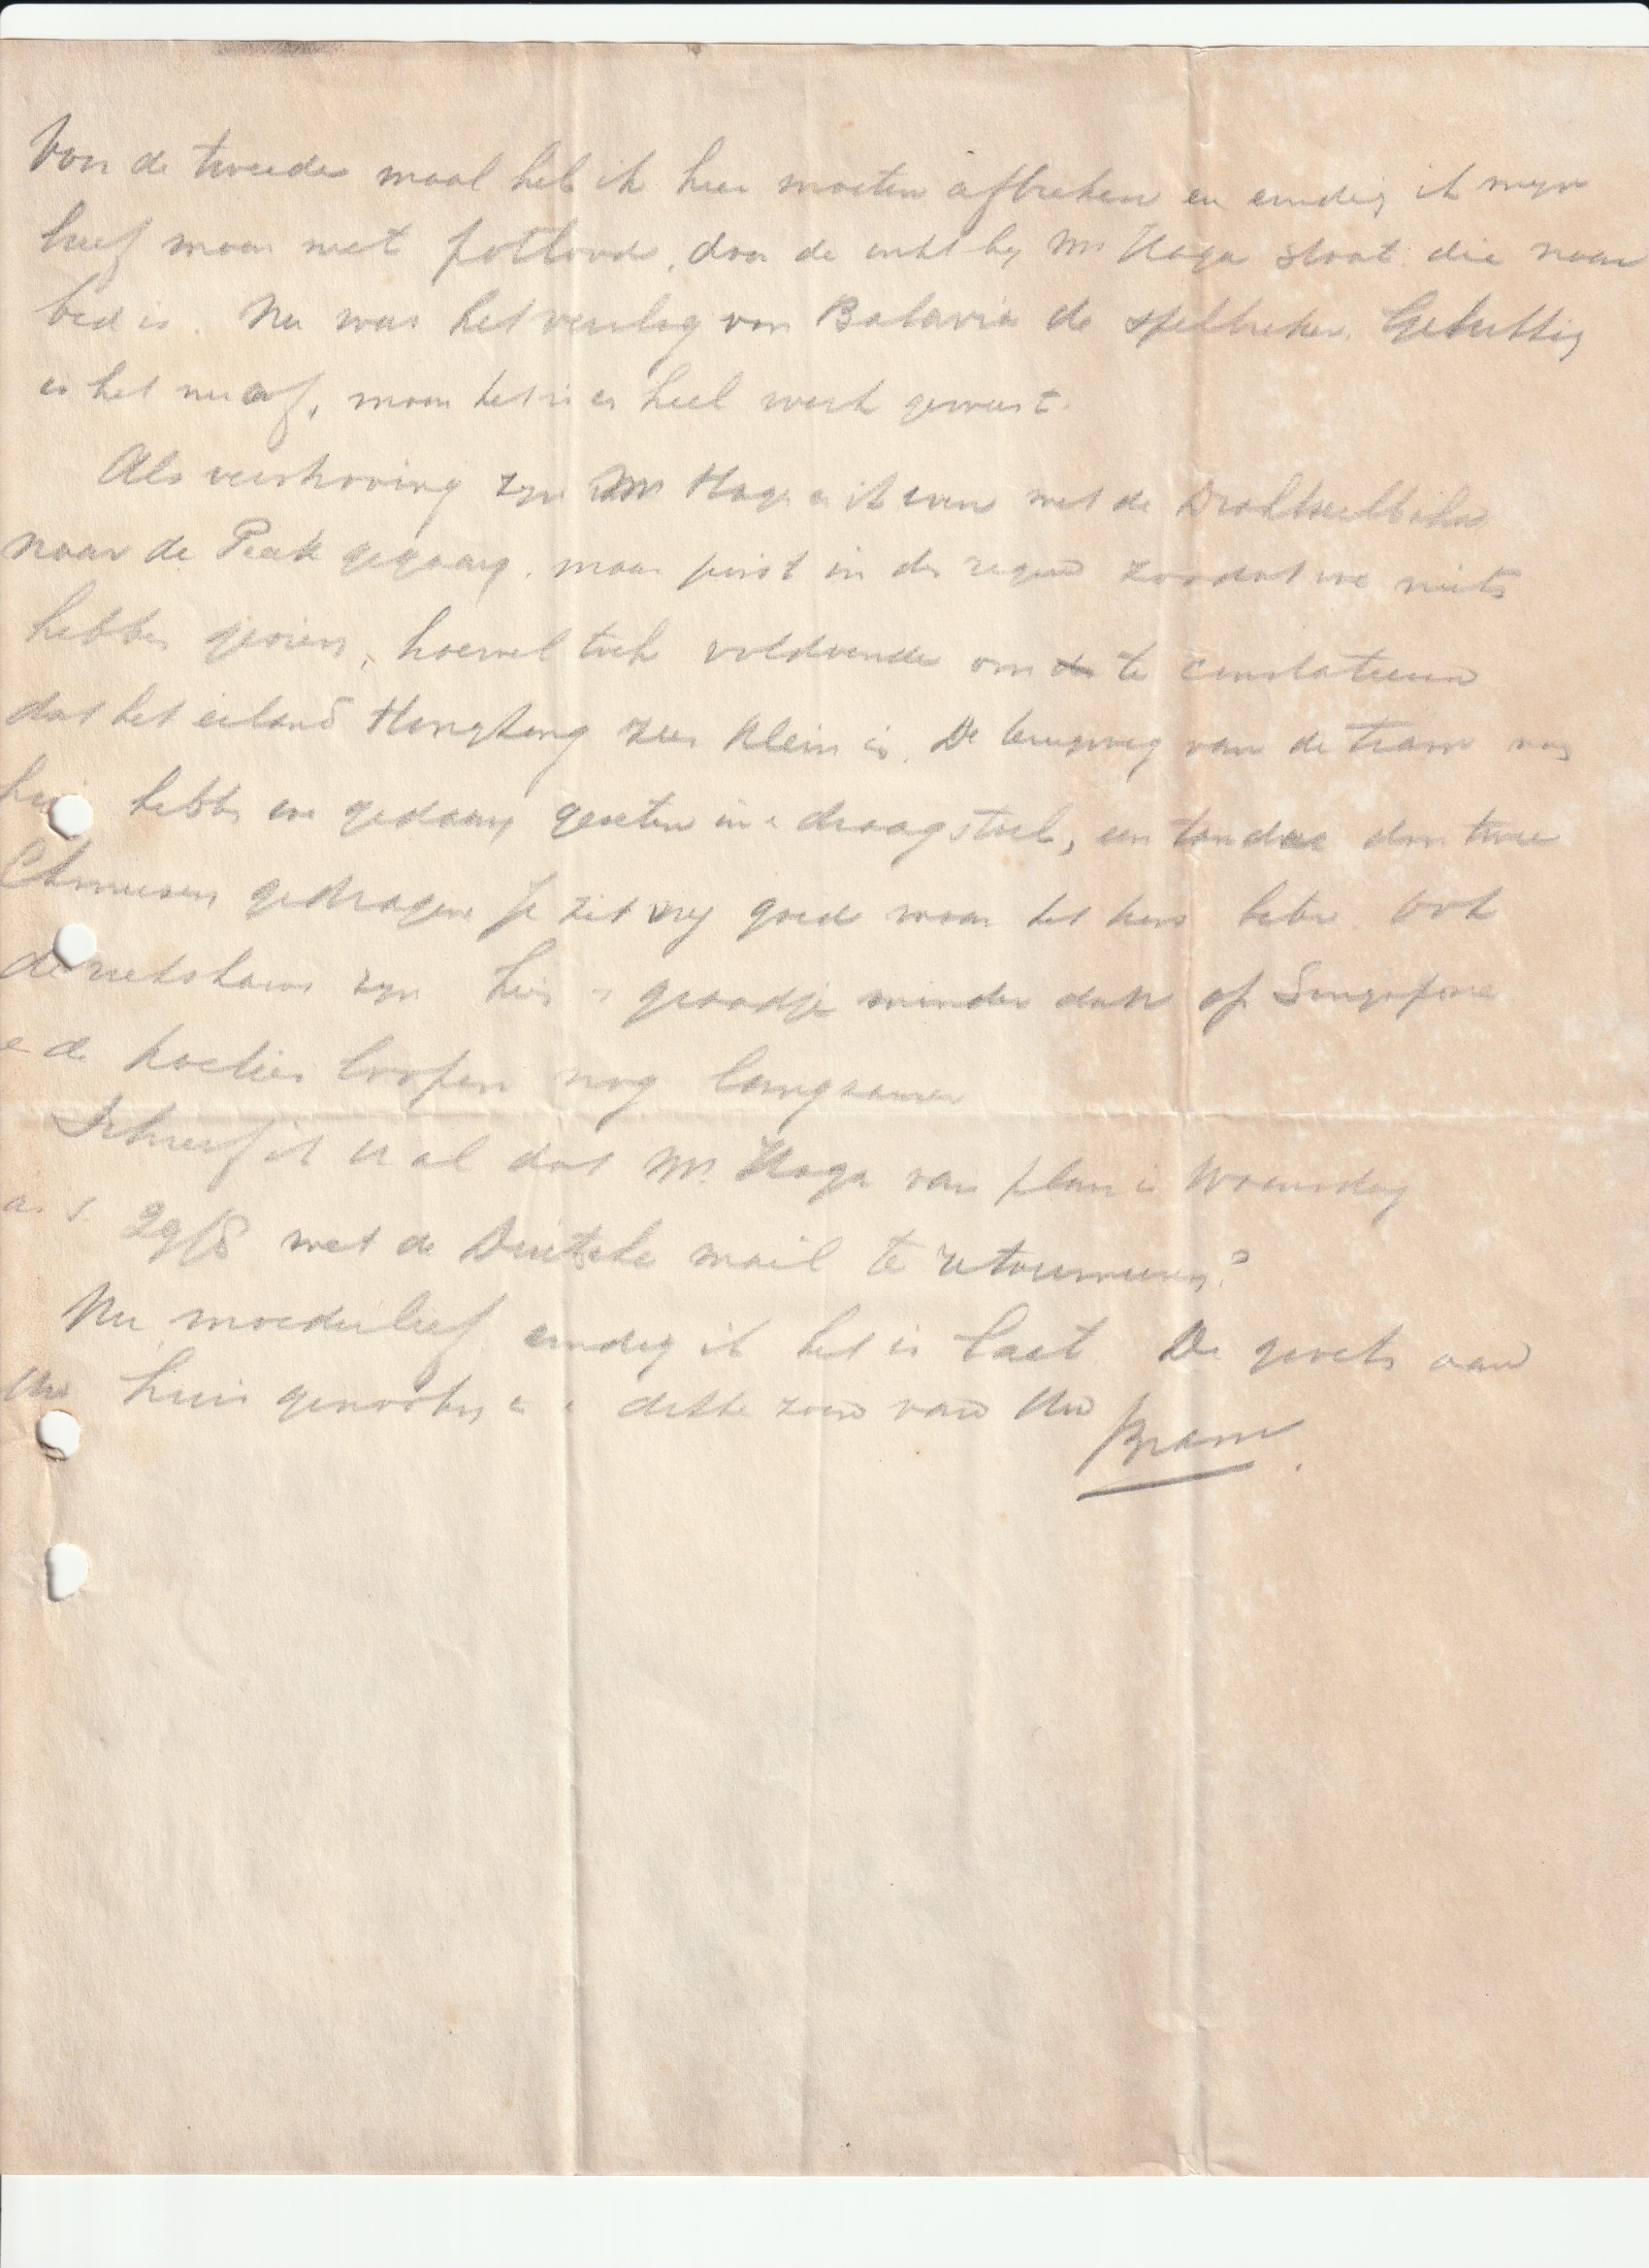 Voor de tweede maal heb ik hier moeten afbreken en eindig ik mijn
brief maar met potlood, daar de inkt bij Mr Haga staat die naar
bed is. Nu was het verslag van Batavia de spelbreker. Gelukkig
is het nu af, maar het is er heel werk geweest.
Als verstrooiing zijn Mr Haga en ik even met de Drahtseilbahn
naar de Peak gegaan, maar juist in de regen zoodat we niets
hebben gezien, hoewel toch voldoende om te constateeren
dat het eiland Hongkong zeer klein is. De terugweg van de tram naar
huis hebben we gedaan gezeten in 'n draagstoel, een tandoe door twee
Chineezen gedragen. Je zit vrij goed maar het kan beter. Ook
de rickshaws zijn hier 'n graadje minder dan op Singapore
en de koelies loopen nog langzamer
Schreef ik U al dat Mr. Haga van plan is Woensdag
a. s. 29/8 met de Duitsche mail te retourneeren?
Nu moederlief eindig ik het is laat. De groets aan
Uw huisgenooten en 'n dikke zoen van Uw
Bram.